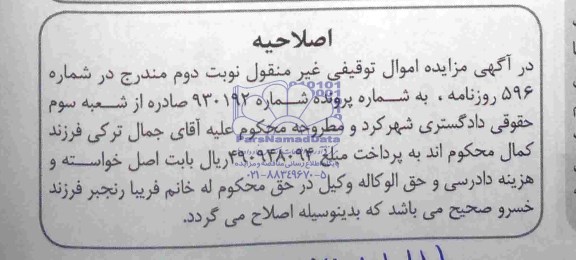 اصلاحیه
در آگهی مزایده اموال توقیفی غیر منقول نوبت دوم مندرج در شماره
۵۹۶ روزنامه ، به شماره پرونده شماره ۹۳۰۱۹۲ صادره از شعبه سوم
حقوقی دادگستری شهرکرد و مطروحه محکوم علیه آقای جمال ترکی فرزند
کمال محکوم اند به پرداخت مبلغ ۴۹۰۹۴۸۰۹۴ریال بابت اصل خواسته و
هزینه دادرسی و حق الوکاله وکیل در حق محکوم له خانم فریبا رنجبر فرزند
خسرو صحیح می باشد که بدینوسیله اصلاح می گردد.
ParsNamadData
۰۲۱-۸۸۳۴۹۶۷۰-۵